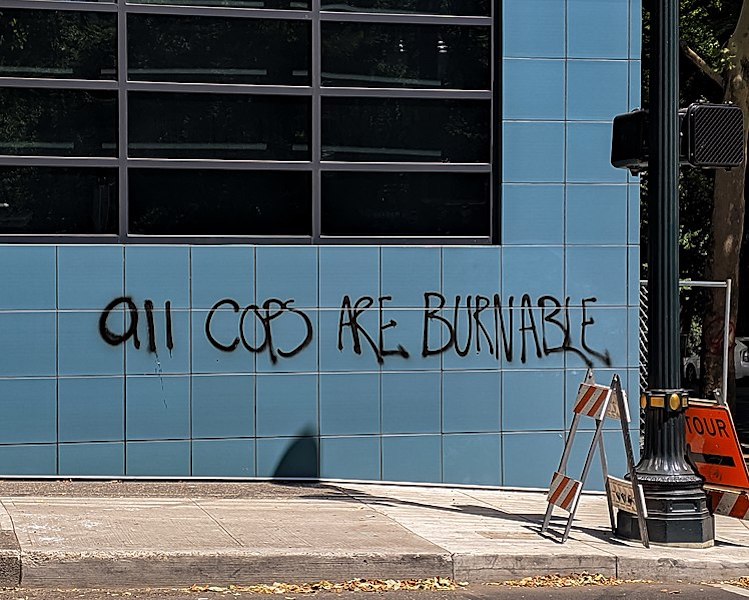 all COPS ARE BURNABLE
TOUR